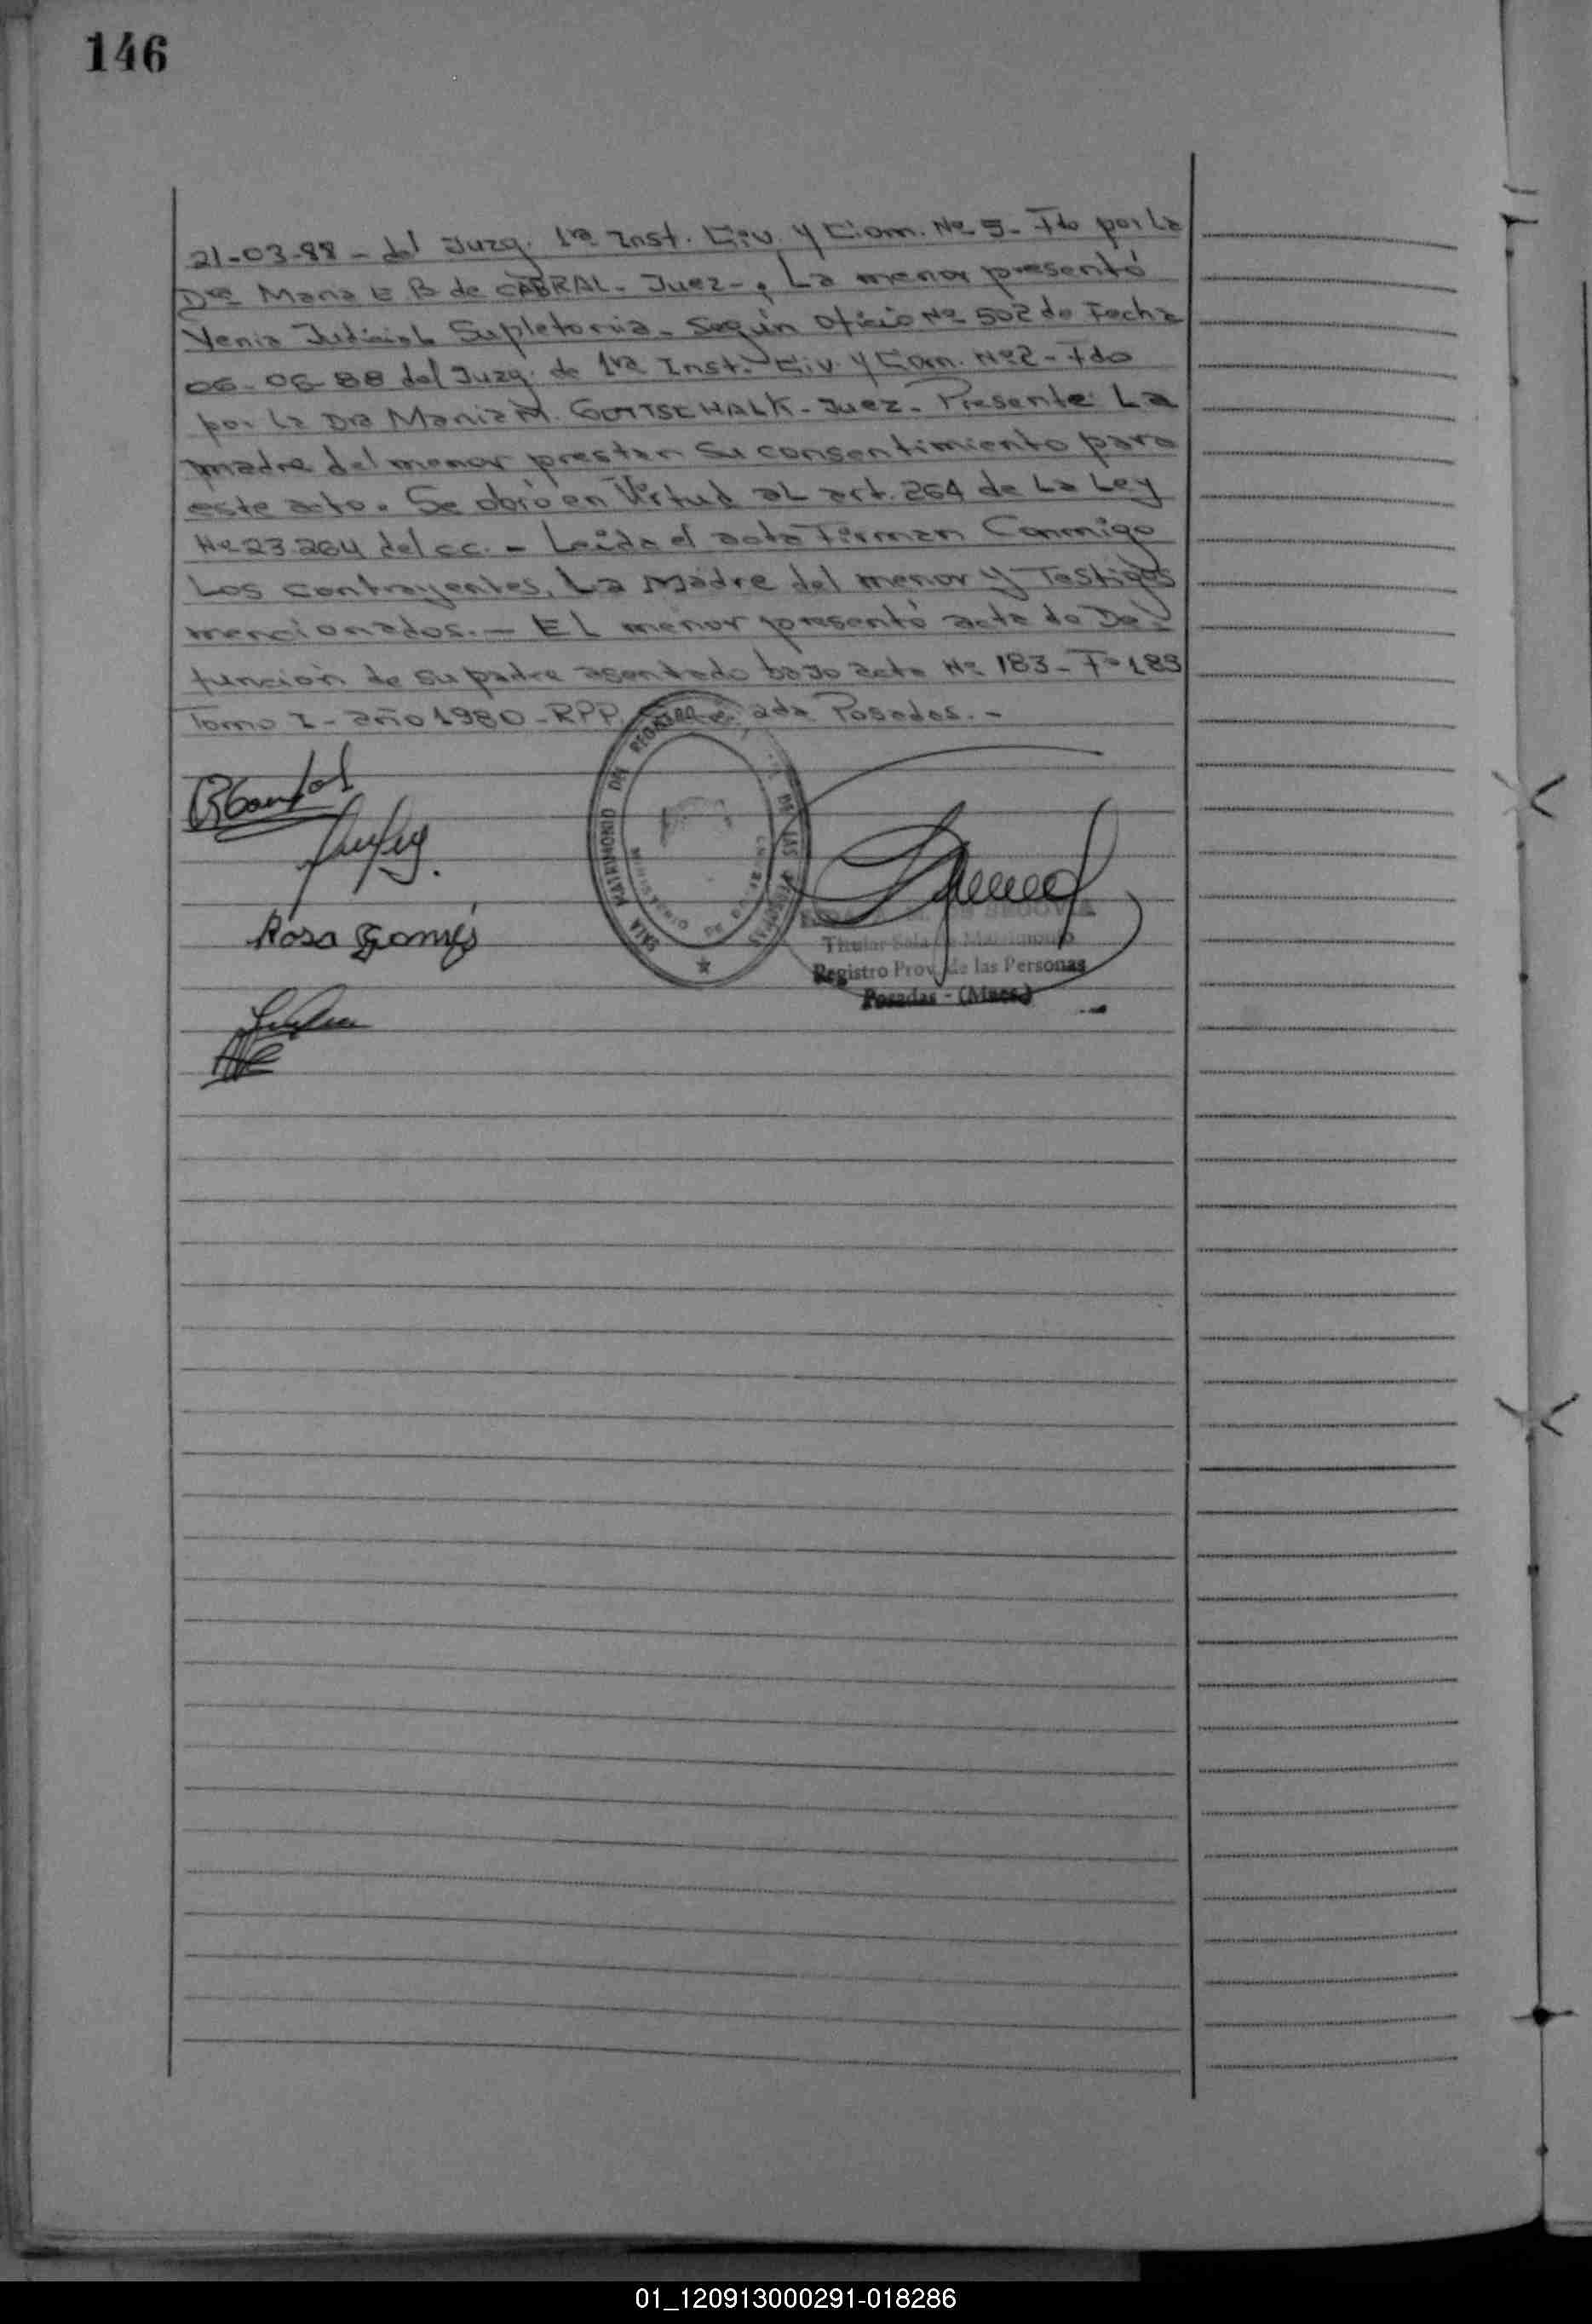 146
21-03-88 - del Juzg. 1ra Inst. Civ. y Com. Nº 5 - Fdo por La
Dra Maria E B de CABRAL - Juez -, La menor presentó
Venia Judicial Supletoria - Según oficio Nº 502 de Fecha
06-06-88 del Juzg. de 1ra Inst. Civ. y Com. Nº 2 - Fdo
por La Dra Maria M. GOTTSCHALK - Juez - Presente La
madre del menor prestan su consentimiento para
este acto. Se obró en Virtud al art. 264 de La Ley
Nº 23.264 del cc. - Leida el acta Firman Conmigo
Los contrayentes, La Madre del menor y Testigos
mencionados. - EL menor presentó acta de De-
función de su padre asentado bajo acta Nº 183 - Fº 183
Tomo I - año 1980 - RPP. Posadas. -
Rosa Gomes
SALA MATRIMONIO DEL REGISTRO DE LAS PERSONAS
SEGOVIA
Titular Sala de Matrimonio
Registro Prov. de las Personas
Posadas - (Mnes.)
01_120913000291-018286